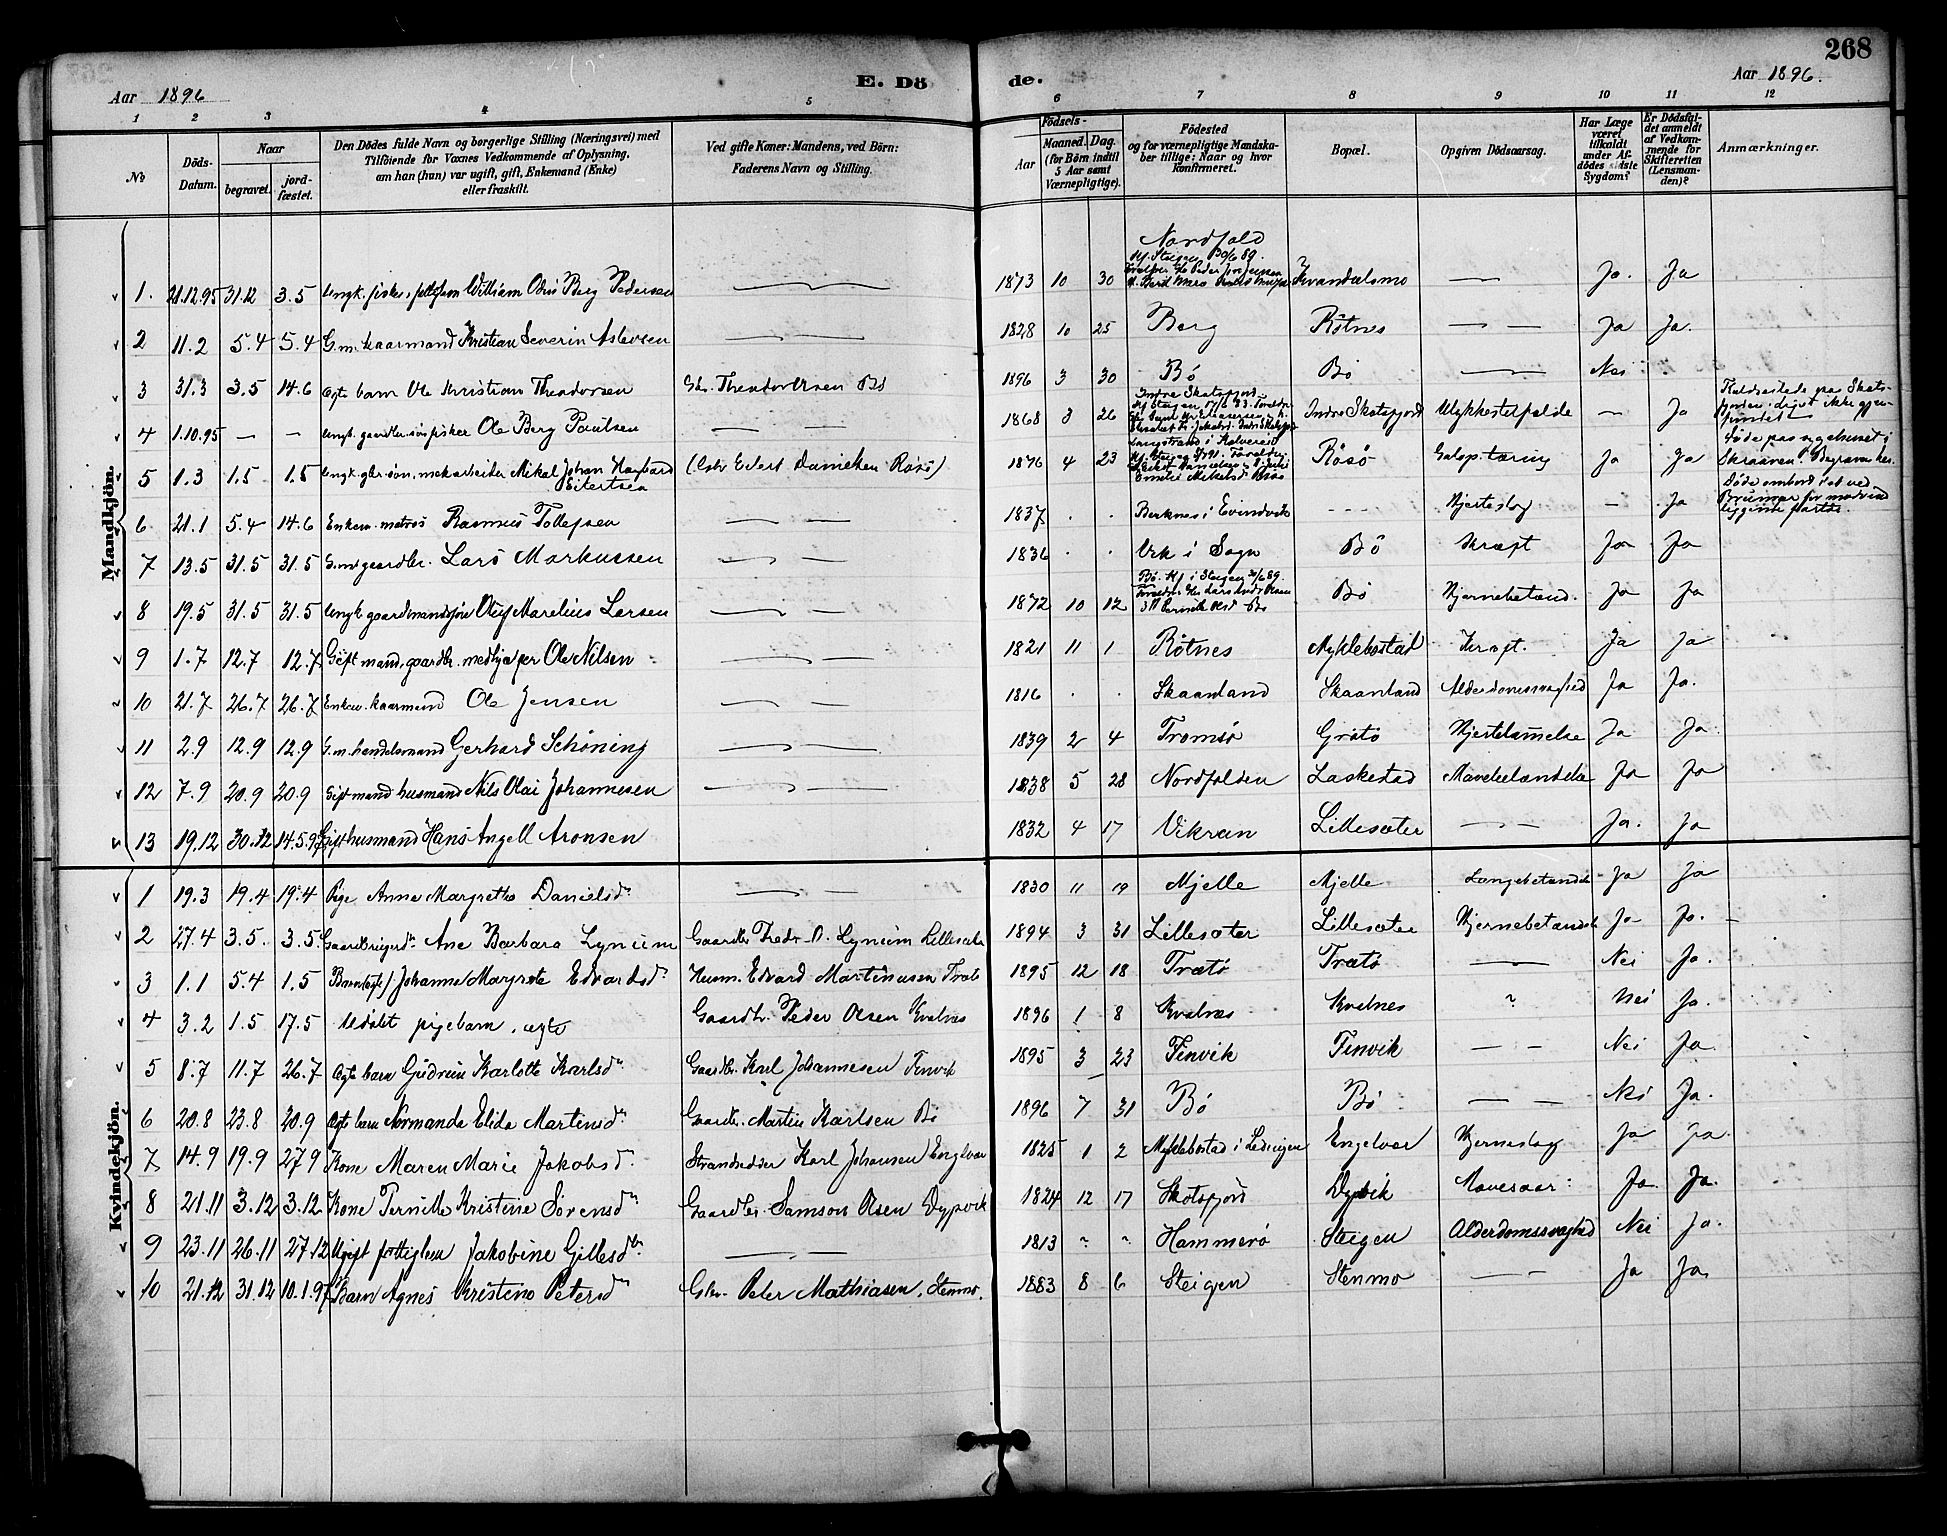 268
E. Dö de.
Aar 1896
Aar 1896.
1 2 3 4 5 6 7 8 9 10 11 12
No
Döds-Datum.
Naar
begravet.
jord-fæstet.
Den Dödes fulde Navn og borgerlige Stilling (Næringsvei) med
Tilföiende for Voxnes Vedkommende af Oplysning,
om han (hun) var ugift, gift, Enkemand (Enke)
eller fraskilt.
Ved gifte Koner: Mandens, ved Börn:
Faderens Navn og Stilling.
Födsels-
Aar
Maaned. Dag.
(for Börn indtil
5 Aar samt
Værnepligtige).
Födested
og for værnepligtige Mandska-
ber tillige: Naar og hvor
konfirmeret.
Bopæl.
Opgiven Dödsaarsag.
Har Læge
været
tilkaldt
under Af-
dödes sidste
Sygdom?
Er Dödsfal-
det anmeldt
af Vedkom-
mende for
Skifteretten
(Lensman-
den)?
Anmærkninger.
Mandkjön.
1. 21.12.95 31.12 3.5 Ungk. William Odin Berg Pedersen 1873 10 30 Nordfold Kvandalsmo Ja. Ja
2 11.2 5.4 5.4 G.m. kaarmand Kristian Severin Aslevsen 1828 10 25 Berg Røtnes Ja Ja.
3 31.3 3.5 14.6 Ægte barn Ole Kristian Theodorsen Bø 1896 3 30 Bø Bø Nei
4 1.10.95 — — Ungk. Ole Berg Paulsen 1868 3 26 Indre Skotsfjord Indre Skotsfjord Ulykkestilfælde — Ja
5 1.3 1.5 1.5 Ungk. gbr. søn, Mikal Johan Hagbard Eilertsen (Gbr. Eilert Danielsen Røsø) 1876 4 23 Røsø Galop. tæring Ja Ja
6 21.1 5.4 14.6 Enkem. matros Rasmus Tollefsen 1837 . . i Evindvik Hjerteslag — Ja
7 13.5 31.5 31.5 G.m. gaardbr. Lars Markussen 1836 . . i Sogn Bø Kræft Ja Ja
8 19.5 31.5 31.5 Ungk. gaardmandssøn Oluf Marelius Larsen 1872 10 12 Bø. Bø Hjernebetænd. Ja Ja
9 1.7 12.7 12.7 Gift mand, gaardbr. medhjælper Ole Nilsen 1821 11 1 Røtnes Myklebostad Kræft. Ja Ja
10 21.7 26.7 26.7 Enkem. kaarmand Ole Jensen 1816 . . Skaanland Skaanland Alderdomssvaghed Ja Ja.
11 2.9 12.9 12.9 G.m. handelsmand Gerhard Schøning 1839 2 4 Tromsø Grøtø Hjertelammelse Ja Ja
12 7.9 20.9 20.9 Gift mand husmand Nils Olai Johannesen 1838 5 28 Nordfolden Laskestad Ja Ja
13 19.12 30.12 14.5.97 Gift husmand Hans Angell Aronsen 1832 4 17 Vikran Lillesæter Ja. Ja
Kvindekjön.
1 19.3 19.4 19.4 Pige Anne Margrethe Danielsdr 1830 11 19 Mjelle Mjelle Lungebetændelse Ja Ja
2 27.4 3.5. 3.5. Ane Barbara Lynum Gaardbr. Fredr. D. Lynum Lillesæter 1894 3 31 Lillesæter Lillesæter Hjernebetændelse Ja Ja.
3 1.1 5.4 1.5 Barn (ægte) Johanne Margrete Edvardsdr Husm. Edvard Martinusen Trætø 1895 12 18 Trætø Trætø Nei Ja.
4 3.2 1.5 17.5 Udøbt pigebarn, ægte Gaardbr. Peder Olsen Kvalnes 1896 1 8 Kvalnes Kvalnes Nei Ja.
5 8.7 11.7 26.7 Ægte barn Gudrun Karlotte Karlsdr Gaardbr. Karl Johannesen Finvik 1895 3 23 Finvik Finvik Nei Ja.
6 20.8 23.8 20.9 Ægte barn Normanda Elida Martinsdr Gaardbr. Martin Karlsen Bø 1896 7 31 Bø Bø Nei Ja.
7 14.9 19.9 27.9 Kone Maren Marie Jakobsd. Strandsidder Karl Johansen Engelvær 1825 1 2 Myklebostad i Lødingen Engelvær Hjerneslag Ja Ja.
8 21.11 3.12 3.12 Kone Pernille Kristine Sørensdr Gaardbr. Samson Olsen Dypvik 1824 12 17 Skotsfjord Dypvik Mavesaar Ja Ja.
9 23.11 26.11 27.12 Ugift fattiglem Jakobine Gillesdtr 1813 " " Hammerø Steigen Alderdomssvaghed Nei Ja.
10 21.12 31.12 10.1.97 Barn Agnes Kristine Petersdr Gbr. Peter Mathiasen, Stenmo. 1883 8 6 Steigen Stenmo Ja Ja